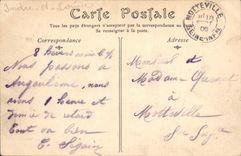 Indre et Loire
Carte Postale
Tous les pays étrangers n'acceptent pas la correspondance au recto
Se renseigner à la poste
MOTTEVILLE
SEINE-INFRE
Correspondance
Adresse
2 heures
Nous passons à
Angoulême, nous
avons 1 heure et
demie de retard
Tout va bien
Monsieur et
Madame
à
Motteville
Sne Infre